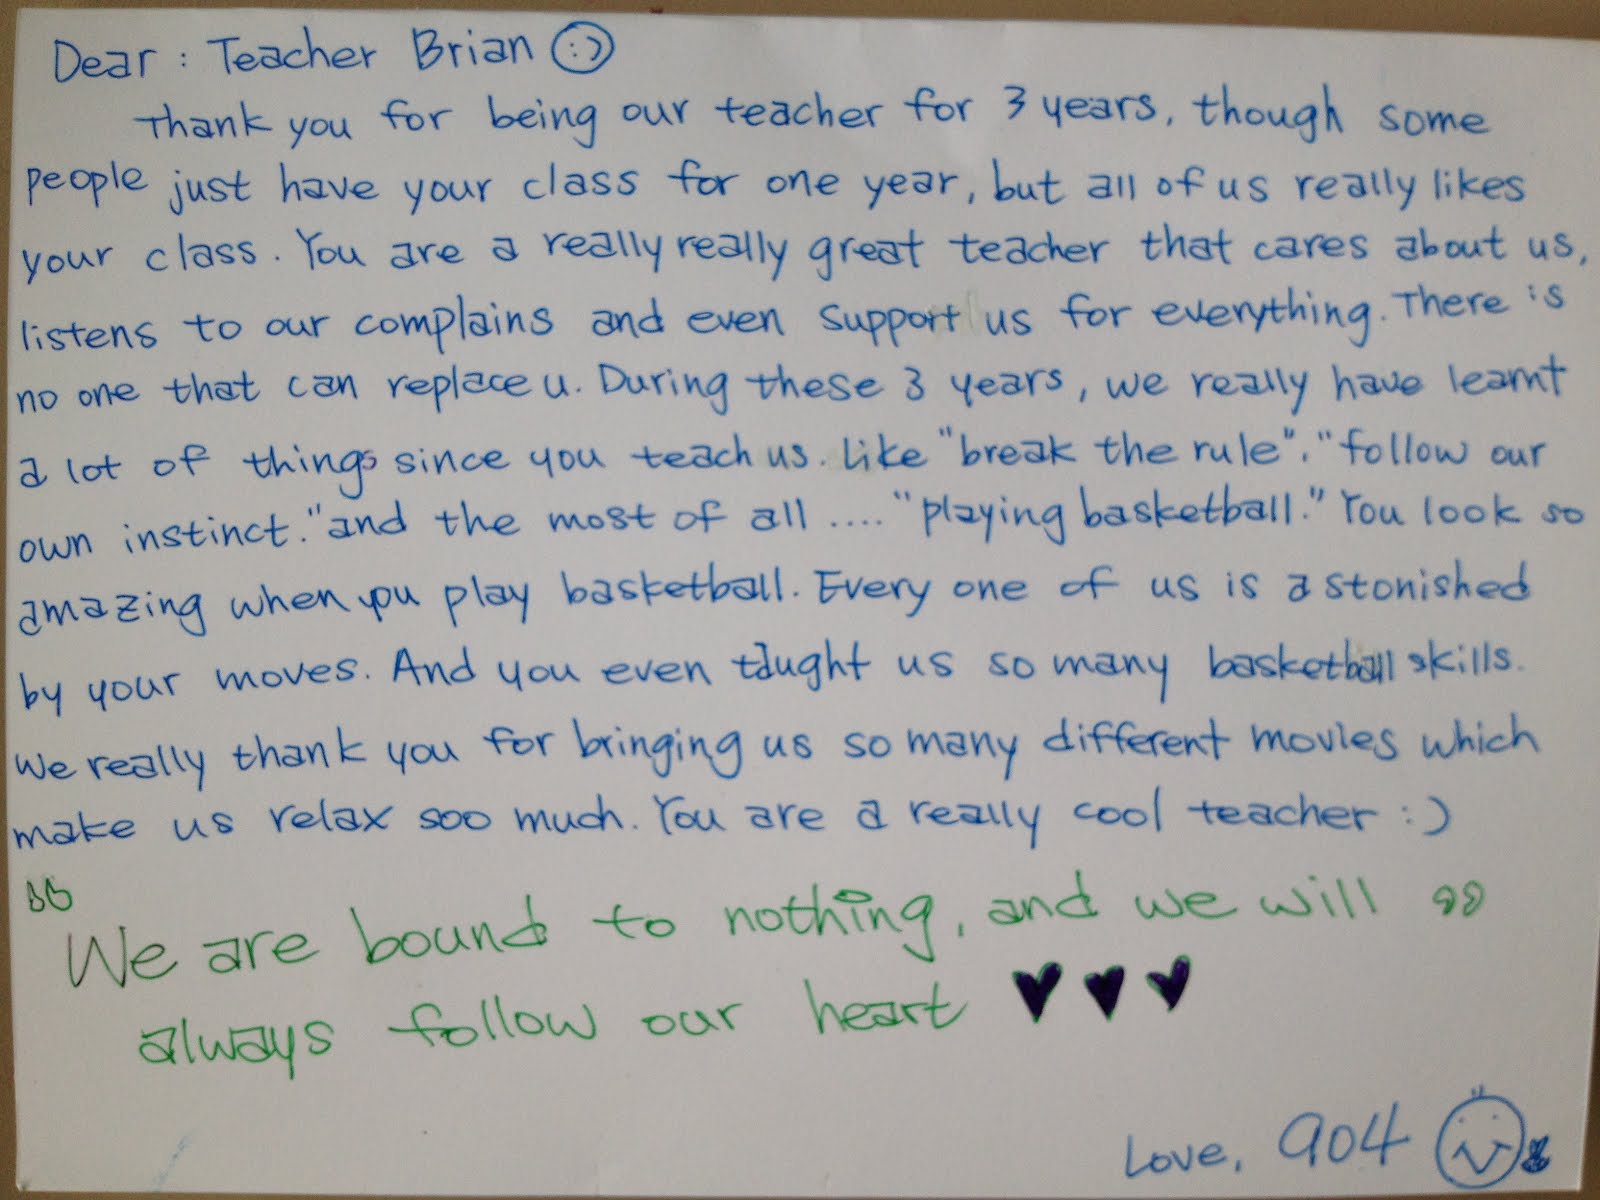 Dear : Teacher Brian :)
Thank you for being our teacher for 3 years, though some
people just have your class for one year, but all of us really likes
your class. You are a really really great teacher that cares about us,
listens to our complains and even support us for everything. There is
no one that can replace u. During these 3 years, we really have learnt
a lot of things since you teach us. Like "break the rule", "follow our
own instinct." and the most of all .... "playing basketball." You look so
amazing when you play basketball. Every one of us is astonished
by your moves. And you even taught us so many basketball skills.
We really thank you for bringing us so many different movies which
make us relax soo much. You are a really cool teacher :)
"We are bound to nothing, and we will "
always follow our heart ♥♥♥
Love, 904